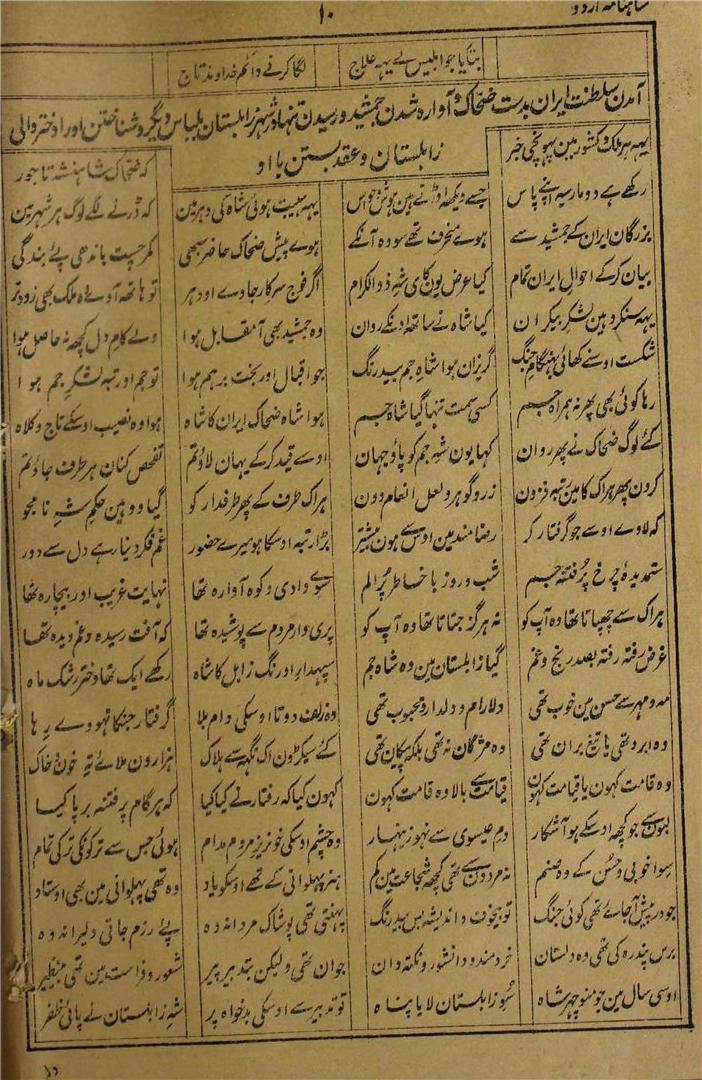 شاہنامہ اردو
۱۰
بتاگیا جو ابلیس نے یہہ علاج لگا کرنے دائم خداوند تاج
آمدن سلطنت ایران بدست ضحاک و آوارہ شدن جمشید و رسیدن تنہا در شہر زابلستان بلباس دیگر و شناختن اورا دختر والی
زابلستان و عقد بستن با او
یہہ ہر ملک و کشور مین پہونچی خبر
کہ ضحاک شاہنشہ تاجور
رکھے ہے دو مار سیہ اپنے پاس جسے دیکھہ اوڑتے ہین ہوش و حواس
یہہ ہیبت ہوئی شاہ کی دہر مین کہ ڈرنے لگے لوگ ہر شہر مین
بزرگان ایران کے جمشید سے ہوے منحرف تھے سو وہ آنکے
ہوے پیش ضحاک حاضر سبھی کمر چست باندھی پئے بندگی
بیان کرکے احوال ایران تمام کیا عرض یون کای شہ ذوالکرام
اگر فوج سرکار جاوے اودہر تو ہاتھہ آوے وہ ملک بھی زودتر
یہہ سنکر وہین لشکر بیکران کیا شاہ نے ساتھہ اونکے روان
وہ جمشید بھی آ مقابل ہوا ولے کام دل کچھہ نہ حاصل ہوا
شکست اوسنے کھائی بہنگام جنگ گریزان ہوا شاہ جم بیدرنگ
جو اقبال اور بخت برہم ہوا تو جم اور تبہ لشکر جم ہوا
رہا کوئی بھی پھر نہ ہمراہ جم کسی سمت تنہا گیا شاہ جم
ہوا شاہ ضحاک ایران کا شاہ ہوا وہ نصیب اوسکے تاج و کلاہ
کئے لوگ ضحاک نے پھر روان کہا یون شہ جم کو پاؤ جہان
اوسے قید کرکے یہان لاؤ تم تفحص کنان ہر طرف جاؤ تم
کرون پھر ہراک کا مین رتبہ فزون زر و گوہر و لعل انعام دون
ہراک طرف کے پھر طرفدار کو گیا ووہین حکم شہ نامجو
کہ لاوے اوسے جو گرفتار کر رضامند مین اوس سے ہون بیشتر
بڑا رتبہ اوسکا ہو میرے حضور غم فکر دنیا رہے دل سے دور
ستمدیدۂ چرخ پرفتنہ جم شب و روز با خاطر پر الم
سوے وادی و کوہ آوارہ تھا نہایت غریب اور بیچارہ تھا
ہراک سے چھپاتا تھا وہ آپ کو نہ ہرگز جتاتا تھا وہ آپ کو
پری وار مردم سے پوشیدہ تھا کہ آفت رسیدہ و غمدیدہ تھا
غرض رفتہ رفتہ بصد رنج و غم گیا زابلستان مین وہ شاہ جم
سپہدار اورنگ زابل کا شاہ رکھے ایک تھا دختر رشک ماہ
مہ و مہر سے حسن مین خوب تھی دلارام و دلدار و محبوب تھی
وہ زلف دوتا اوسکی دام بلا گرفتار جنکا نہووے رہا
وہ ابرو تھی یا تیغ بران تھی وہ مژگان نہ تھی بلکہ پیکان تھی
کئے سیکڑون اک نگہ سے ہلاک ہزارون ملائے تہ خون و خاک
وہ قامت کہون یا قیامت کہون قیامت سے بالا وہ قامت کہون
کہون کیا کہ رفتار نے کیا کیا کہ ہر گام پر فتنہ برپا کیا
لبون سے جو کچھہ اوسکے ہو آشکار دم عیسوی سے نہو زینہار
وہ چشم اوسکی خونریز مردم مدام ہوئی جس سے ترکونکی ترکی تمام
سوا خوبی و حسن کے وہ صنم نہ مردون سے تھی کچھہ شجاعت مین کم
ہنر پہلوانی کے تھے اوسکو یاد وہ تھی پہلوانی مین بھی اوستاد
جو درپیش آجائے تھی کوئی جنگ تو بیخوف و اندیشہ بس بیدرنگ
پہنتی تھی پوشاک مردانہ وہ پئے رزم جاتی دلیرانہ وہ
برس پندرہ کی تھی وہ دلستان خردمند و دانشور و نکتہ دان
جوان تھی ولیکن بتدبیر پیر شعور و فراست مین تھی بینظیر
اوسی سال مین جو منوچہر شاہ سوے زابلستان لایا پناہ
تو تدبیر سے اوسکی بدخواہ پر شہ زابلستان نے پائی ظفر